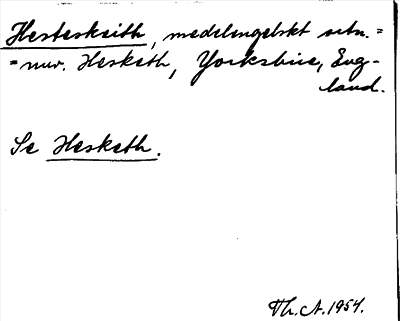 Hesteskeith, medelengelskt ortn.=
=nuv. Hesketh, Yorkshire, Eng-
land.
Se Hesketh.
Th. A. 1954.